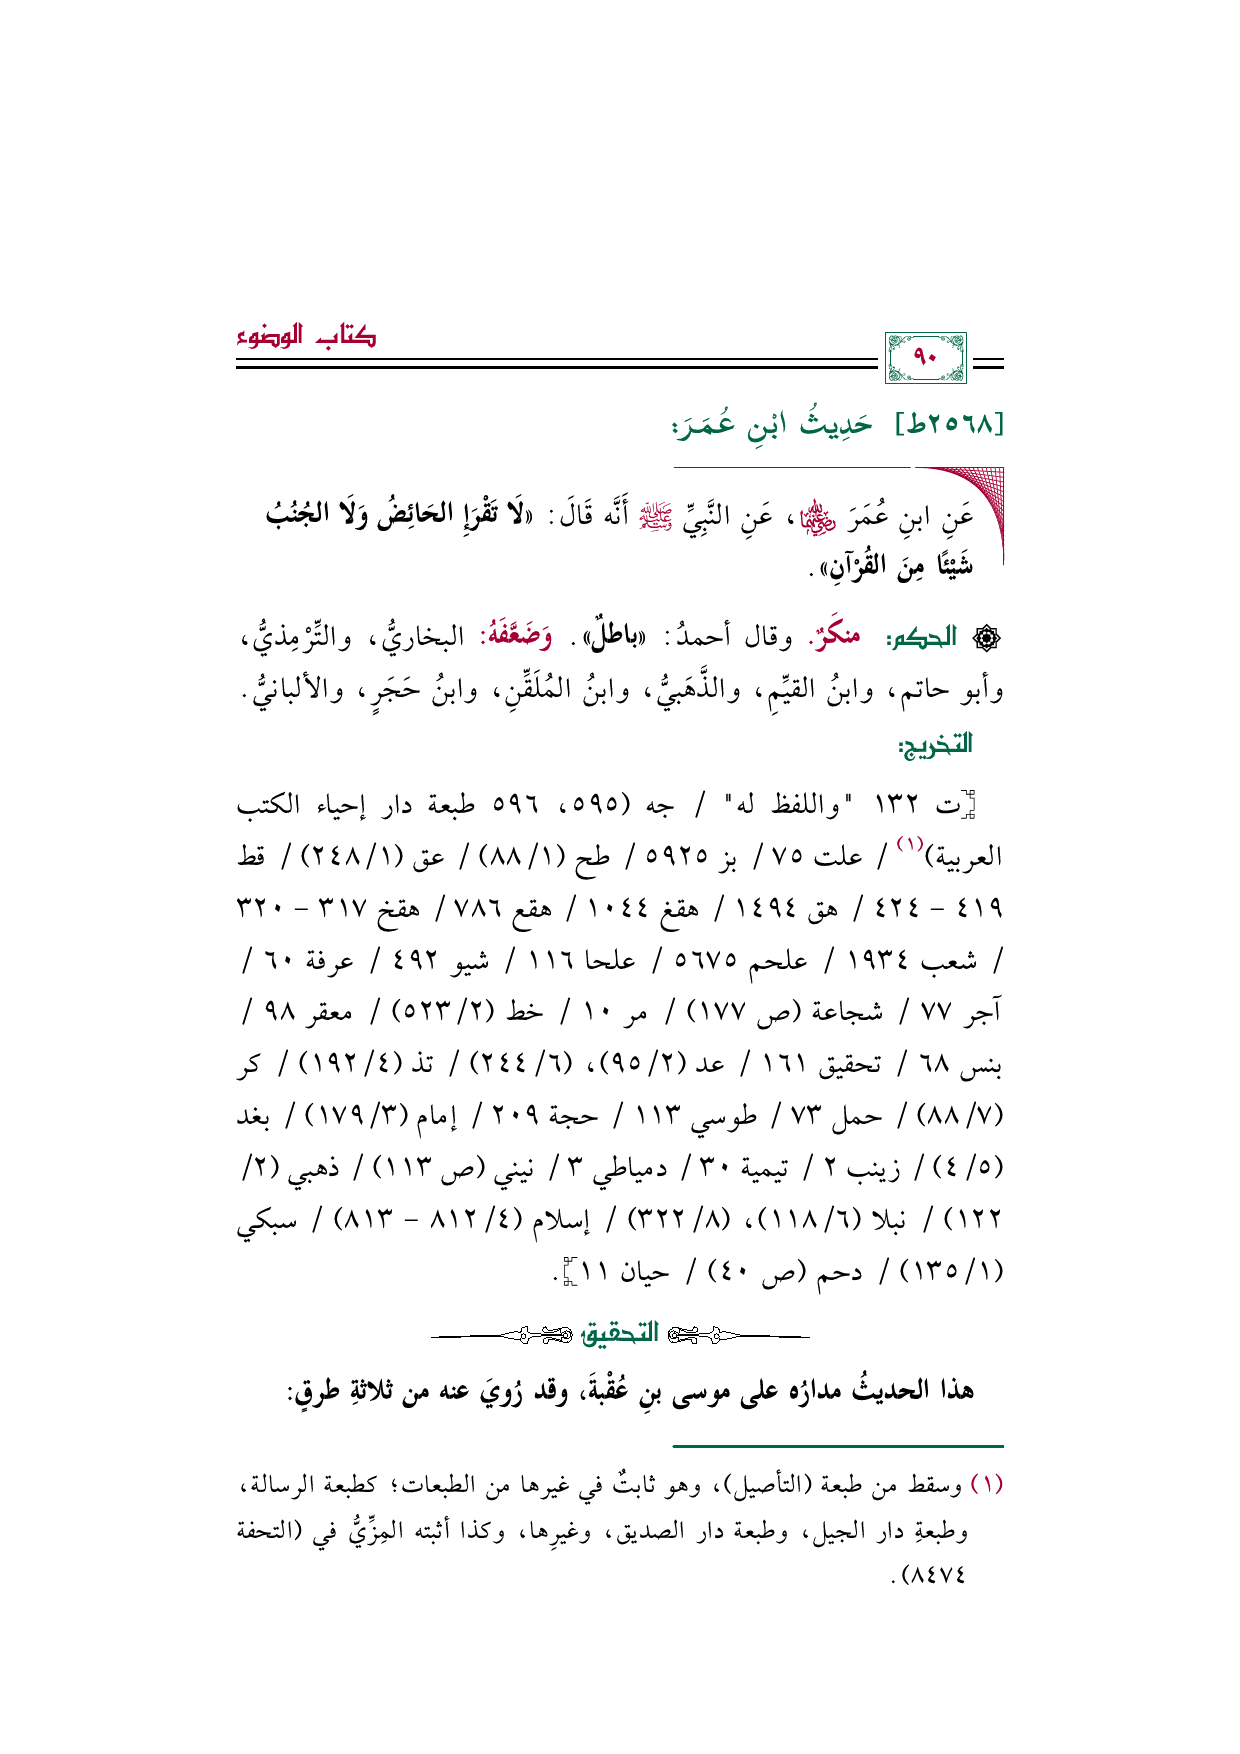 كتاب الوضوء
٩٠
[٢٥٦٨ط] حَدِيثُ ابْنِ عُمَرَ:
عَنِ ابنِ عُمَرَ رضي الله عنهما، عَنِ النَّبِيِّ ﷺ أَنَّه قَالَ: «لَا تَقْرَإِ الحَائِضُ وَلَا الجُنُبُ
شَيْئًا مِنَ القُرْآنِ».
الحكم: منكَرٌ. وقال أحمدُ: «باطلٌ». وَضَعَّفَهُ: البخاريُّ، والتِّرْمِذيُّ،
وأبو حاتم، وابنُ القيِّمِ، والذَّهَبيُّ، وابنُ المُلَقِّنِ، وابنُ حَجَرٍ، والألبانيُّ.
التخريج:
[ت ١٣٢ "واللفظ له" / جه (٥٩٥، ٥٩٦ طبعة دار إحياء الكتب
العربية)(١) / علت ٧٥ / بز ٥٩٢٥ / طح (١/ ٨٨) / عق (١/ ٢٤٨) / قط
٤١٩ – ٤٢٤ / هق ١٤٩٤ / هقغ ١٠٤٤ / هقع ٧٨٦ / هقخ ٣١٧ – ٣٢٠
/ شعب ١٩٣٤ / علحم ٥٦٧٥ / علحا ١١٦ / شيو ٤٩٢ / عرفة ٦٠ /
آجر ٧٧ / شجاعة (ص ١٧٧) / مر ١٠ / خط (٢/ ٥٢٣) / معقر ٩٨ /
بنس ٦٨ / تحقيق ١٦١ / عد (٢/ ٩٥)، (٦/ ٢٤٤) / تذ (٤/ ١٩٢) / كر
(٧/ ٨٨) / حمل ٧٣ / طوسي ١١٣ / حجة ٢٠٩ / إمام (٣/ ١٧٩) / بغد
(٥/ ٤) / زينب ٢ / تيمية ٣٠ / دمياطي ٣ / نيني (ص ١١٣) / ذهبي (٢/
١٢٢) / نبلا (٦/ ١١٨)، (٨/ ٣٢٢) / إسلام (٤/ ٨١٢ – ٨١٣) / سبكي
(١/ ١٣٥) / دحم (ص ٤٠) / حيان ١١].
التحقيق
هذا الحديثُ مدارُه على موسى بنِ عُقْبةَ، وقد رُويَ عنه من ثلاثةِ طرقٍ:
(١) وسقط من طبعة (التأصيل)، وهو ثابتٌ في غيرها من الطبعات؛ كطبعة الرسالة،
وطبعةِ دار الجيل، وطبعة دار الصديق، وغيرِها، وكذا أثبته المِزِّيُّ في (التحفة
٨٤٧٤).